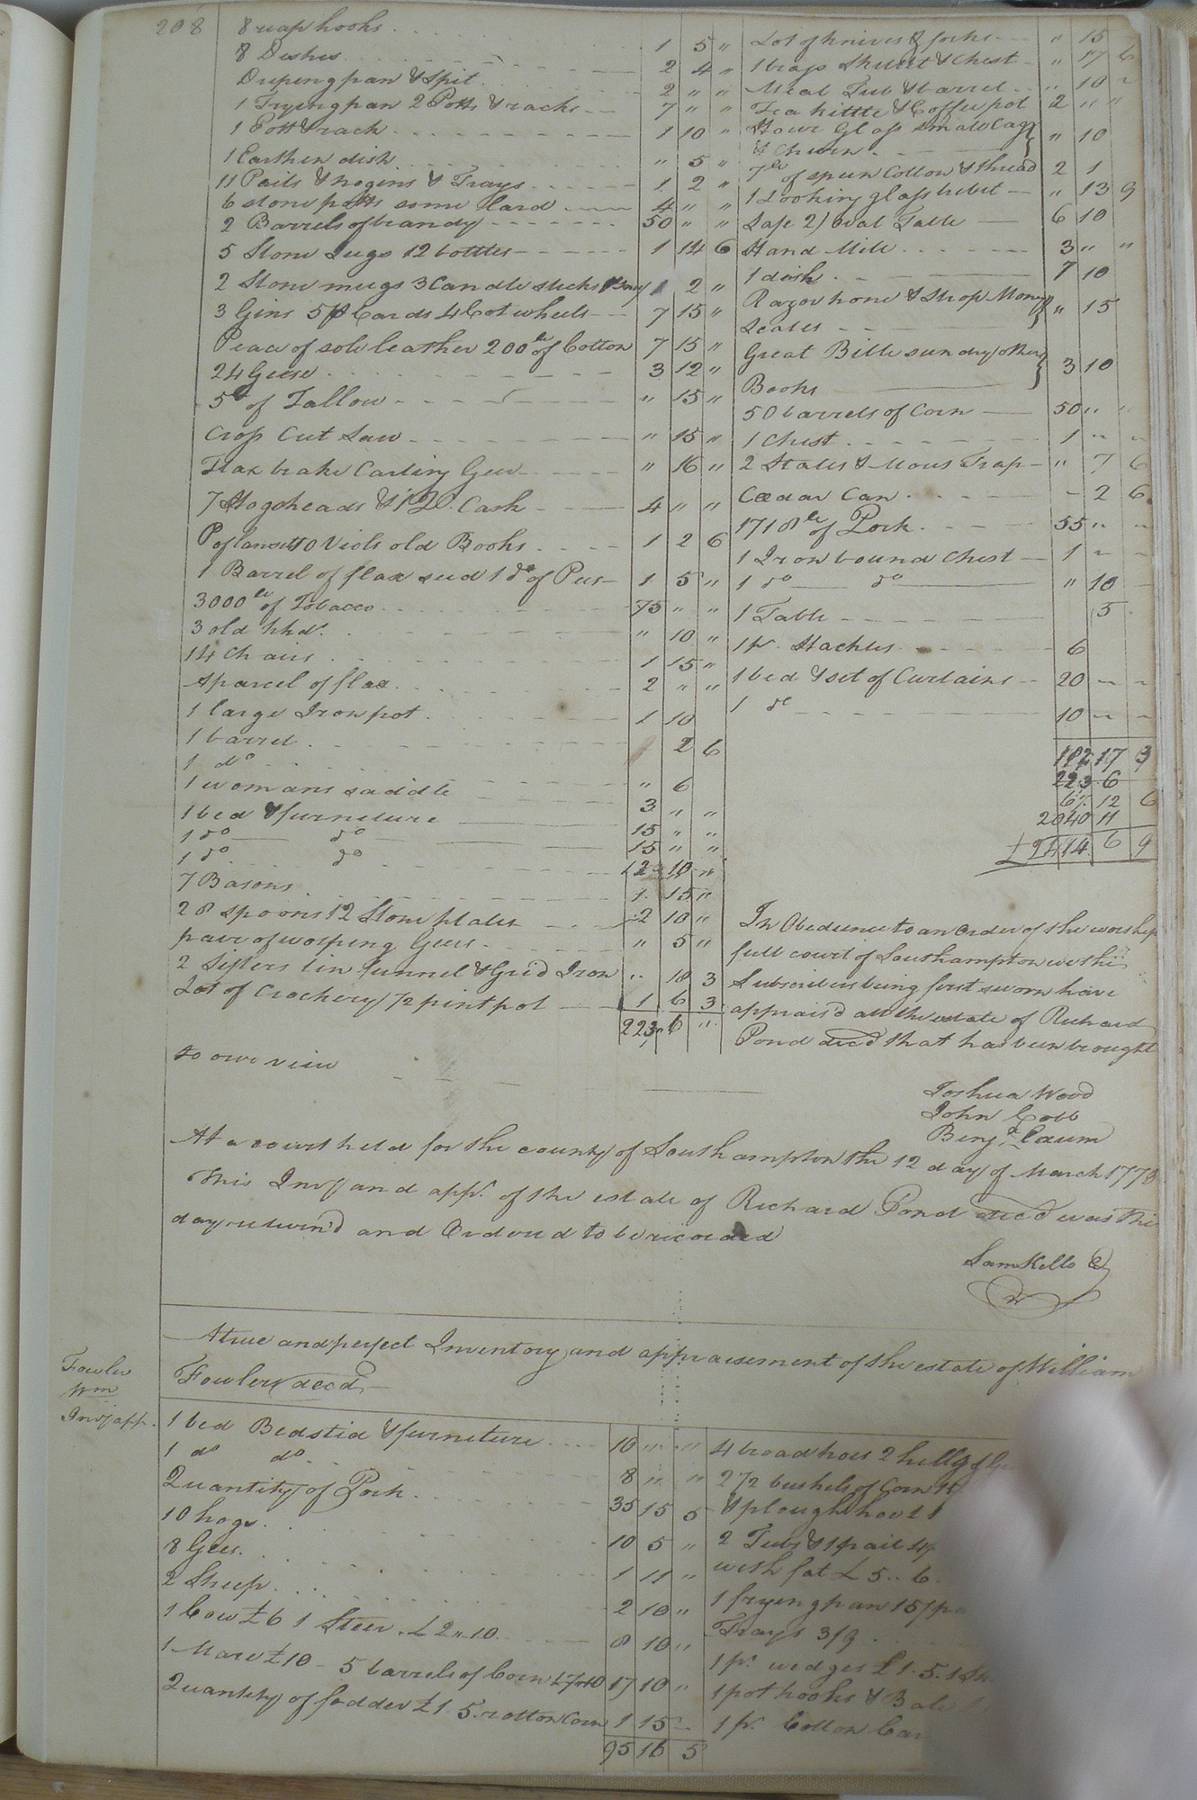 208
8 reap hooks 1 5 "
8 Dishes 2 4 "
Driping pan & Spit 2 " "
1 Frying pan 2 Potts & racks 7 " "
1 Pott & rack 1 10 "
1 Earthen dish " 5 "
11 Pails & nogins & Trays 1 2 "
6 stone potts some lard 4 " "
2 Barrels of brandy 50 " "
5 Stone Jugs 12 bottles 1 14 6
2 Stone mugs 3 Candle sticks 2 "
3 Gins 5 pr Cards 4 Cot wheels 7 15 "
Peace of sole leather 200 lb of Cotton 7 15 "
24 Geese 3 12 "
5 lb of Tallow " 15 "
Cross Cut Saw " 15 "
Flax brake Carting Geer " 16 "
7 Hogsheads & 1 Do. Cask 4 " "
40 Viols old Books 1 2 6
1 Barrel of flax seed 1 do of Peas 1 5 "
3000 lb of Tobacco 75 " "
3 old hhds. " 10 "
14 Chairs 1 15 "
A parcel of flax 2 " "
1 large Iron pot 1 10
1 barrel 2 6
1 do
1 womans saddle " 6
1 bed & furneture 3 " "
1 do do 15 " "
1 do do 15 " "
7 Basons 12 10 "
28 spoons 12 Stone plates 1 15 "
pair of worping Geers 2 10 "
2 Sifters tin funnel & Grid Iron " 5 "
Lot of Crockery 1/2 pint pot " 10 3
1 6 3
223 6 "
Lot of knives & forks " 15
1 brass Skillet & Chest " 17 6
Meal Tub & barrel " 10 "
Tea kittle & Coffee pot 2 " "
Hour Glass small Cagg
& Churn " 10
7 lb of spun Cotton & thread 2 1
1 Looking glass " 13 9
Oval Table 6 10
Hand Mill 3 " "
1 dish 7 10
Razor hone & Strop Mony
Scales " 15
Great Bible sundry other
Books 3 10
50 barrels of Corn 50 " "
1 Chest 1 " "
2 Slates & Mous Trap " 7 6
Ceedar Can - 2 6
1718 lb of Pork 55 " "
1 Iron bound Chest 1 - -
1 do do " 10 -
1 Table 5
1 pr. Stackles 6
1 bed & set of Curtains 20 - -
1 do 10 - -
182 17 3
223 6
12 6
2040 11
£ 2414 6 9
In Obedience to an order of the worship
full court of Southampton we the
Subscribers being first sworn have
apprais'd all the estate of Richard
Pond decd that has been brought
to our view
Joshua Wood
John Cobb
Benja. Crum
At a court held for the county of Southampton the 12 day of March 1778
This Invy and appt. of the estate of Richard Pond decd was this
day return'd and Ordered to be recorded
Sam Kello C
A true and perfect Inventory and appraisement of the estate of William
Fowler decd
Fowler
Wm
Invy app.
1 bed Bedstid & furneture 10 " "
1 do do 8 " "
Quantity of Pork 35 15 5
10 hogs 10 5 "
8 Geese 1 11 "
2 Sheep 2 10 "
1 Cow £6 1 Steer £2 " 10 8 10 "
1 Mare £10 - 5 barrels of Corn £7 " 10 17 10 "
Quantity of fodder £1.5. rotton Corn 1 15 -
95 16 5
4 broad hoes 2 hillg
2 1/2 bushels of Corn
& plough hoe £1
2 Tubs & 1 pail 4/
wish fat £5 " 6
1 frying pan 15/
Trays 3/9
1 pr. wedges £1.5.
1 pot hooks & Bale
1 pr. Cotton Car